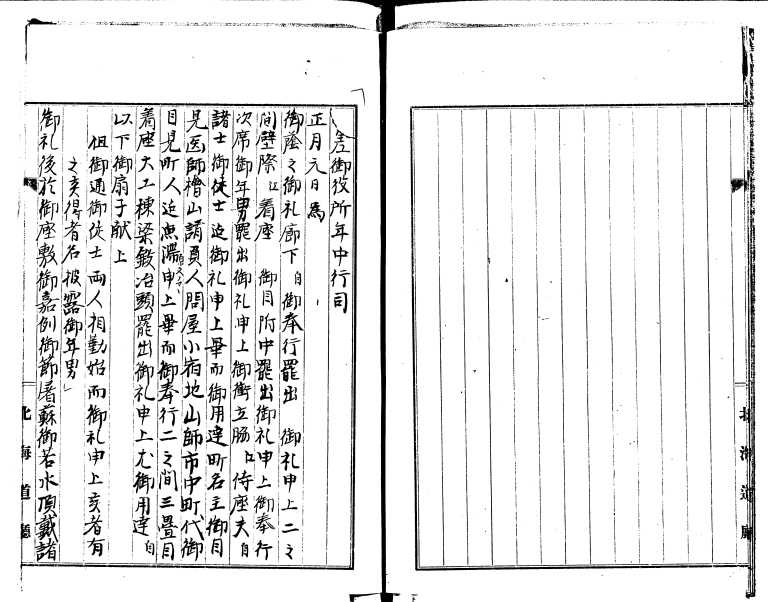 差御役所年中行司
正月元日為
御蔭之御礼廊下ゟ御奉行罷出 御礼申上二之
間壁際江着座 御目附中罷出御礼申上御奉行
次席御年男罷出御礼申上御衝立脇江侍座夫ゟ
諸士御徒士迄御礼申上畢而御用達町名主御目
見医師檜山請負人問屋小宿地山師市中町代御
目見町人迄無滞申上畢而御奉行二之間三畳目
着座大工棟梁鍛冶頭罷出御礼申上尤御用達ゟ
以下御扇子献上
但御通御徒士両人相勤始而御礼申上亥者有
之亥得者名披露御年男」
御礼後於御座敷御嘉例御節屠蘇御若水頂戴諸
北海道廳
北海道廳